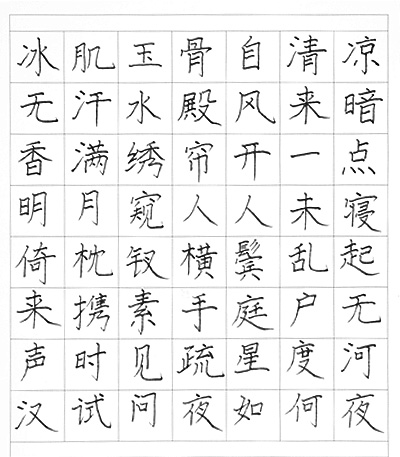 冰肌玉骨自清凉
无汗水殿风来暗
香满绣帘开一点
明月窥人人未寝
倚枕钗横鬓乱起
来携素手庭户无
声时见疏星度河
汉试问夜如何夜